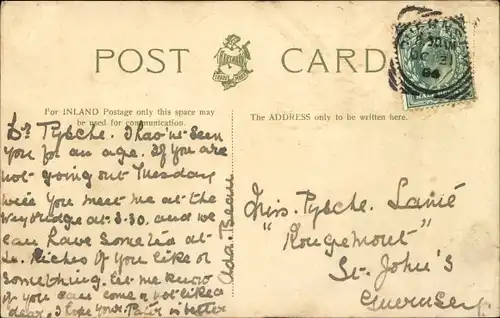 POST CARD
For INLAND Postage only this space may
be used for communication.
The ADDRESS only to be written here.
Dr Tysche. I hav'nt seen
you for an age. If you are
not going out Tuesday
will you meet me at the
Weybridge at 3.30. and we
can have some tea at
Le Riches if you like or
something. Let me know
if you can come or not like a
dear, I hope your Pater is better
Ada.
Miss. Tysche. Lainé
"Rougemont"
St. John's
Guernsey